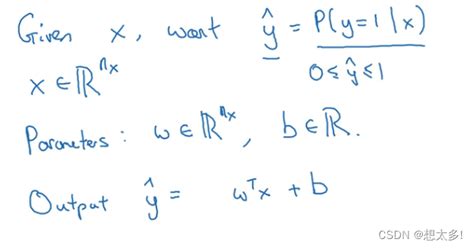 Given x, want ŷ = P(y=1|x)
x ∈ ℝⁿˣ 0≤ŷ≤1
Parameters: w ∈ ℝⁿˣ, b ∈ ℝ.
Output ŷ = wᵀx + b
CSDN @想太多!